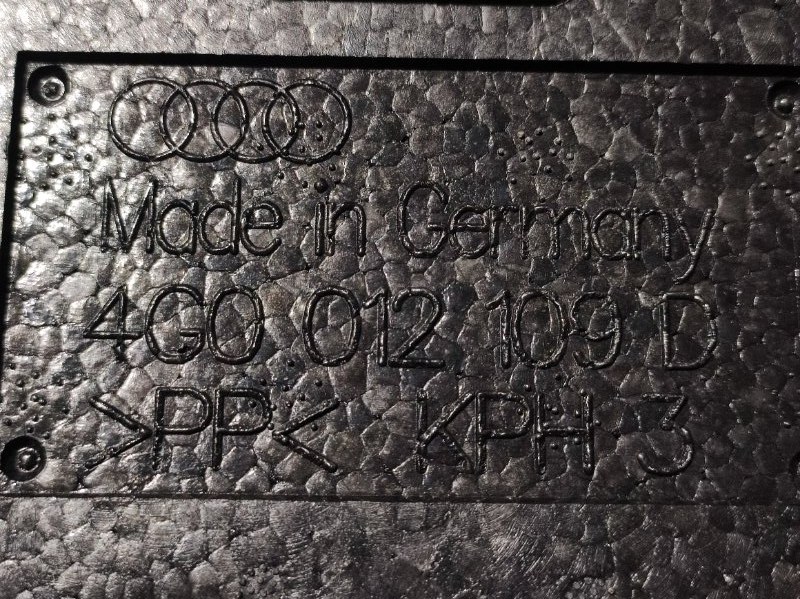 Made in Germany
4G0 012 109 D
>PP< KPH 3